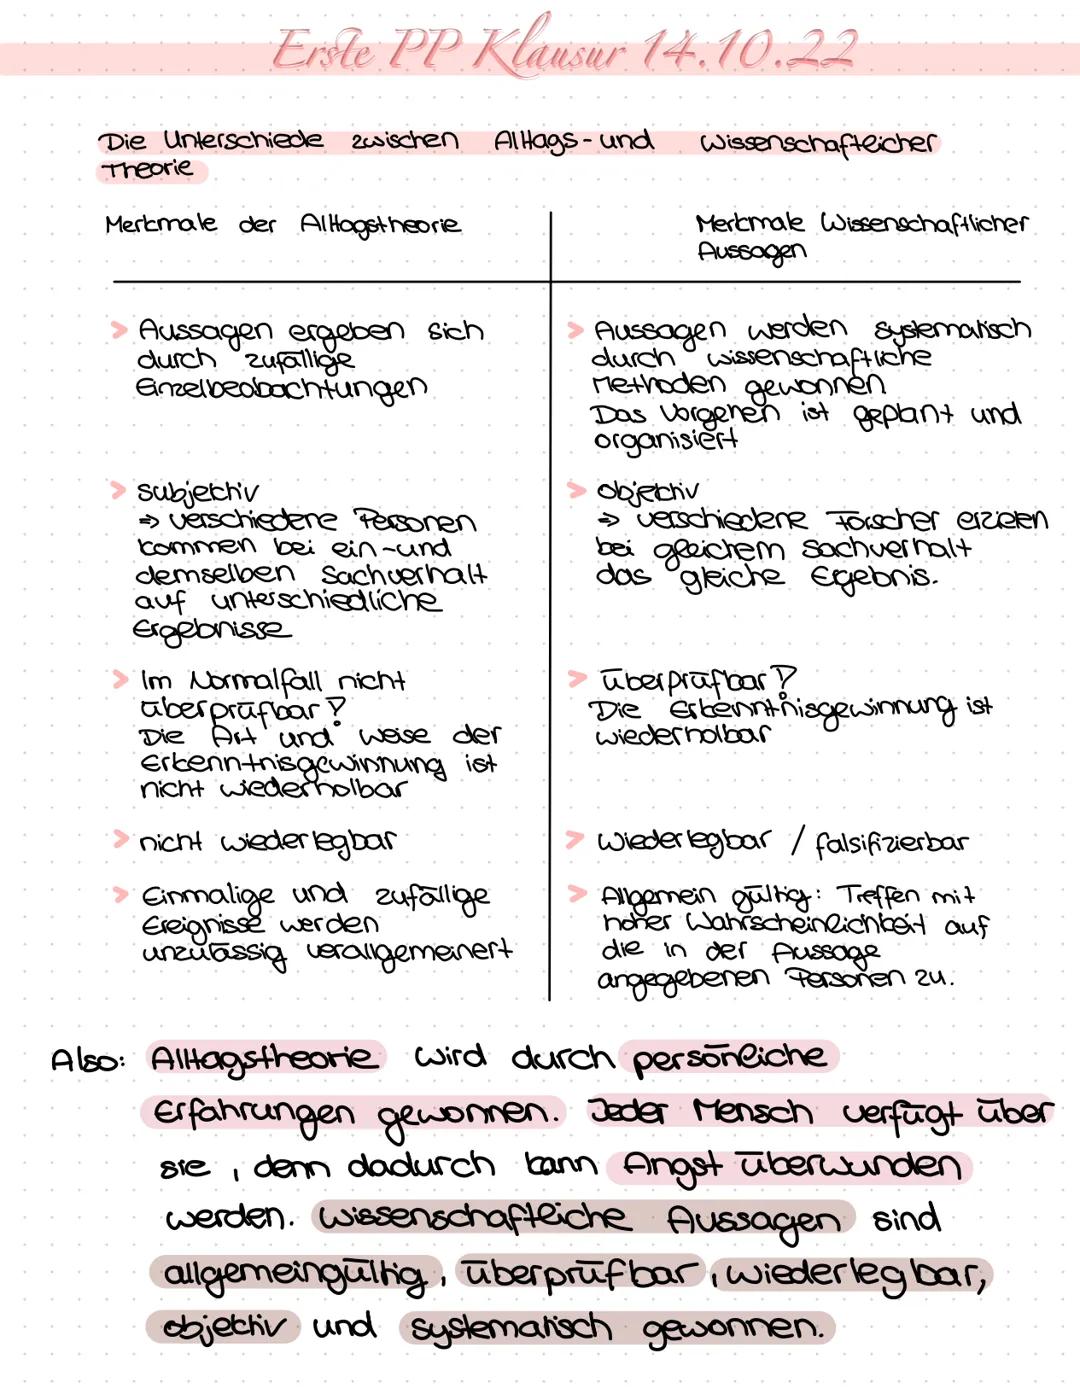 Erste PP Klausur 14.10.22
Die Unterschiede zwischen Alltags-und wissenschaftlicher
Theorie
Merkmale der Alltagstheorie
Merkmale Wissenschaftlicher
Aussagen
> Aussagen ergeben sich
durch zufällige
Einzelbeobachtungen
> Aussagen werden systematisch
durch wissenschaftliche
Methoden gewonnen
Das Vorgehen ist geplant und
organisiert
> subjektiv
=> verschiedene Personen
kommen bei ein-und
demselben Sachverhalt
auf unterschiedliche
Ergebnisse
> objektiv
=> verschiedene Forscher erzielen
bei gleichem Sachverhalt
das gleiche Egebnis.
> Im Normalfall nicht
überprüfbar!
Die Art und weise der
Erkenntnisgewinnung ist
nicht wiederholbar
> überprüfbar!
Die Erkenntnisgewinnung ist
wiederholbar
> nicht wiederlegbar
> wiederlegbar / falsifizierbar
> Einmalige und zufällige
Ereignisse werden
unzulässig verallgemeinert
> Allgemein gültig: Treffen mit
hoher Wahrscheinlichkeit auf
die in der Aussage
angegebenen Personen zu.
Also: Alltagstheorie wird durch persönliche
Erfahrungen gewonnen. Jeder Mensch verfügt über
sie, denn dadurch kann Angst überwunden
werden. Wissenschaftliche Aussagen sind
allgemeingültig, überprüfbar, wiederlegbar,
objektiv und systematisch gewonnen.